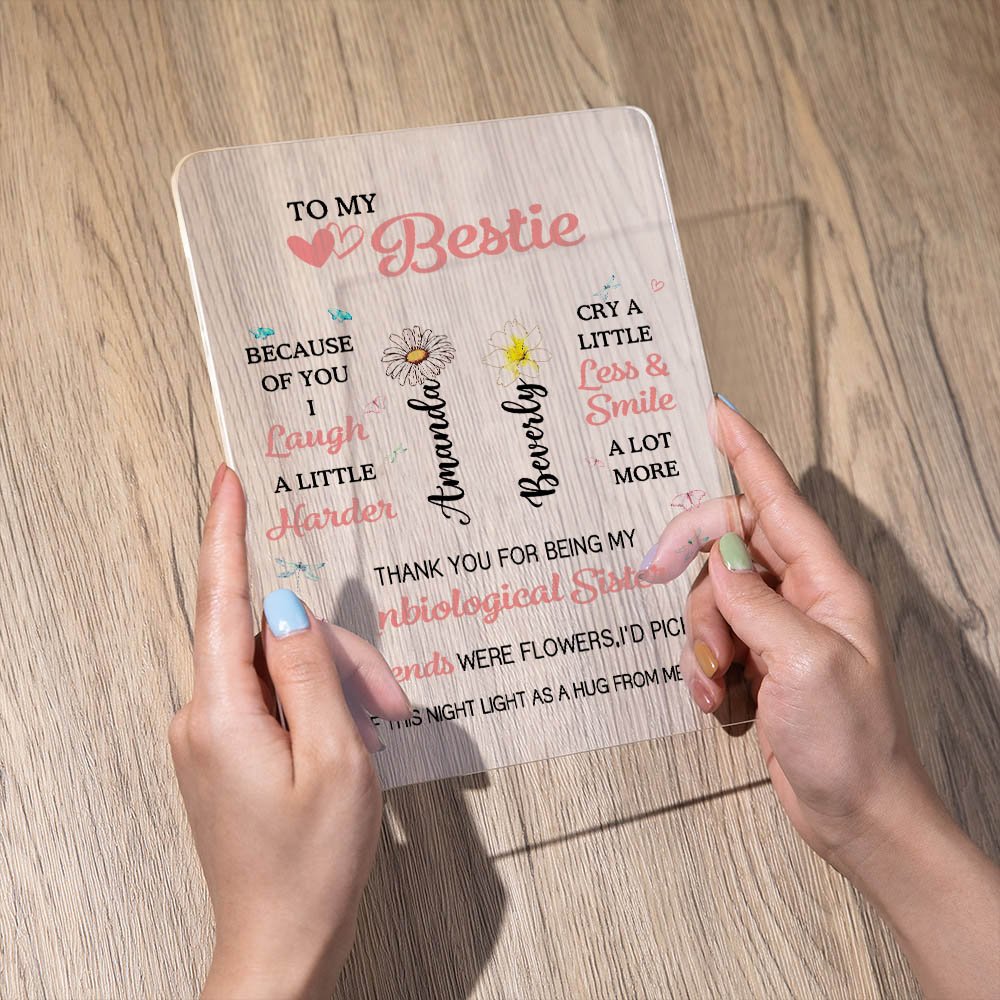 TO MY
Bestie
BECAUSE
OF YOU
I
Laugh
A LITTLE
Harder
Amanda
Beverly
CRY A
LITTLE
Less &
Smile
A LOT
MORE
THANK YOU FOR BEING MY
nbiological Sister
ends WERE FLOWERS,I'D PIC
THIS NIGHT LIGHT AS A HUG FROM ME